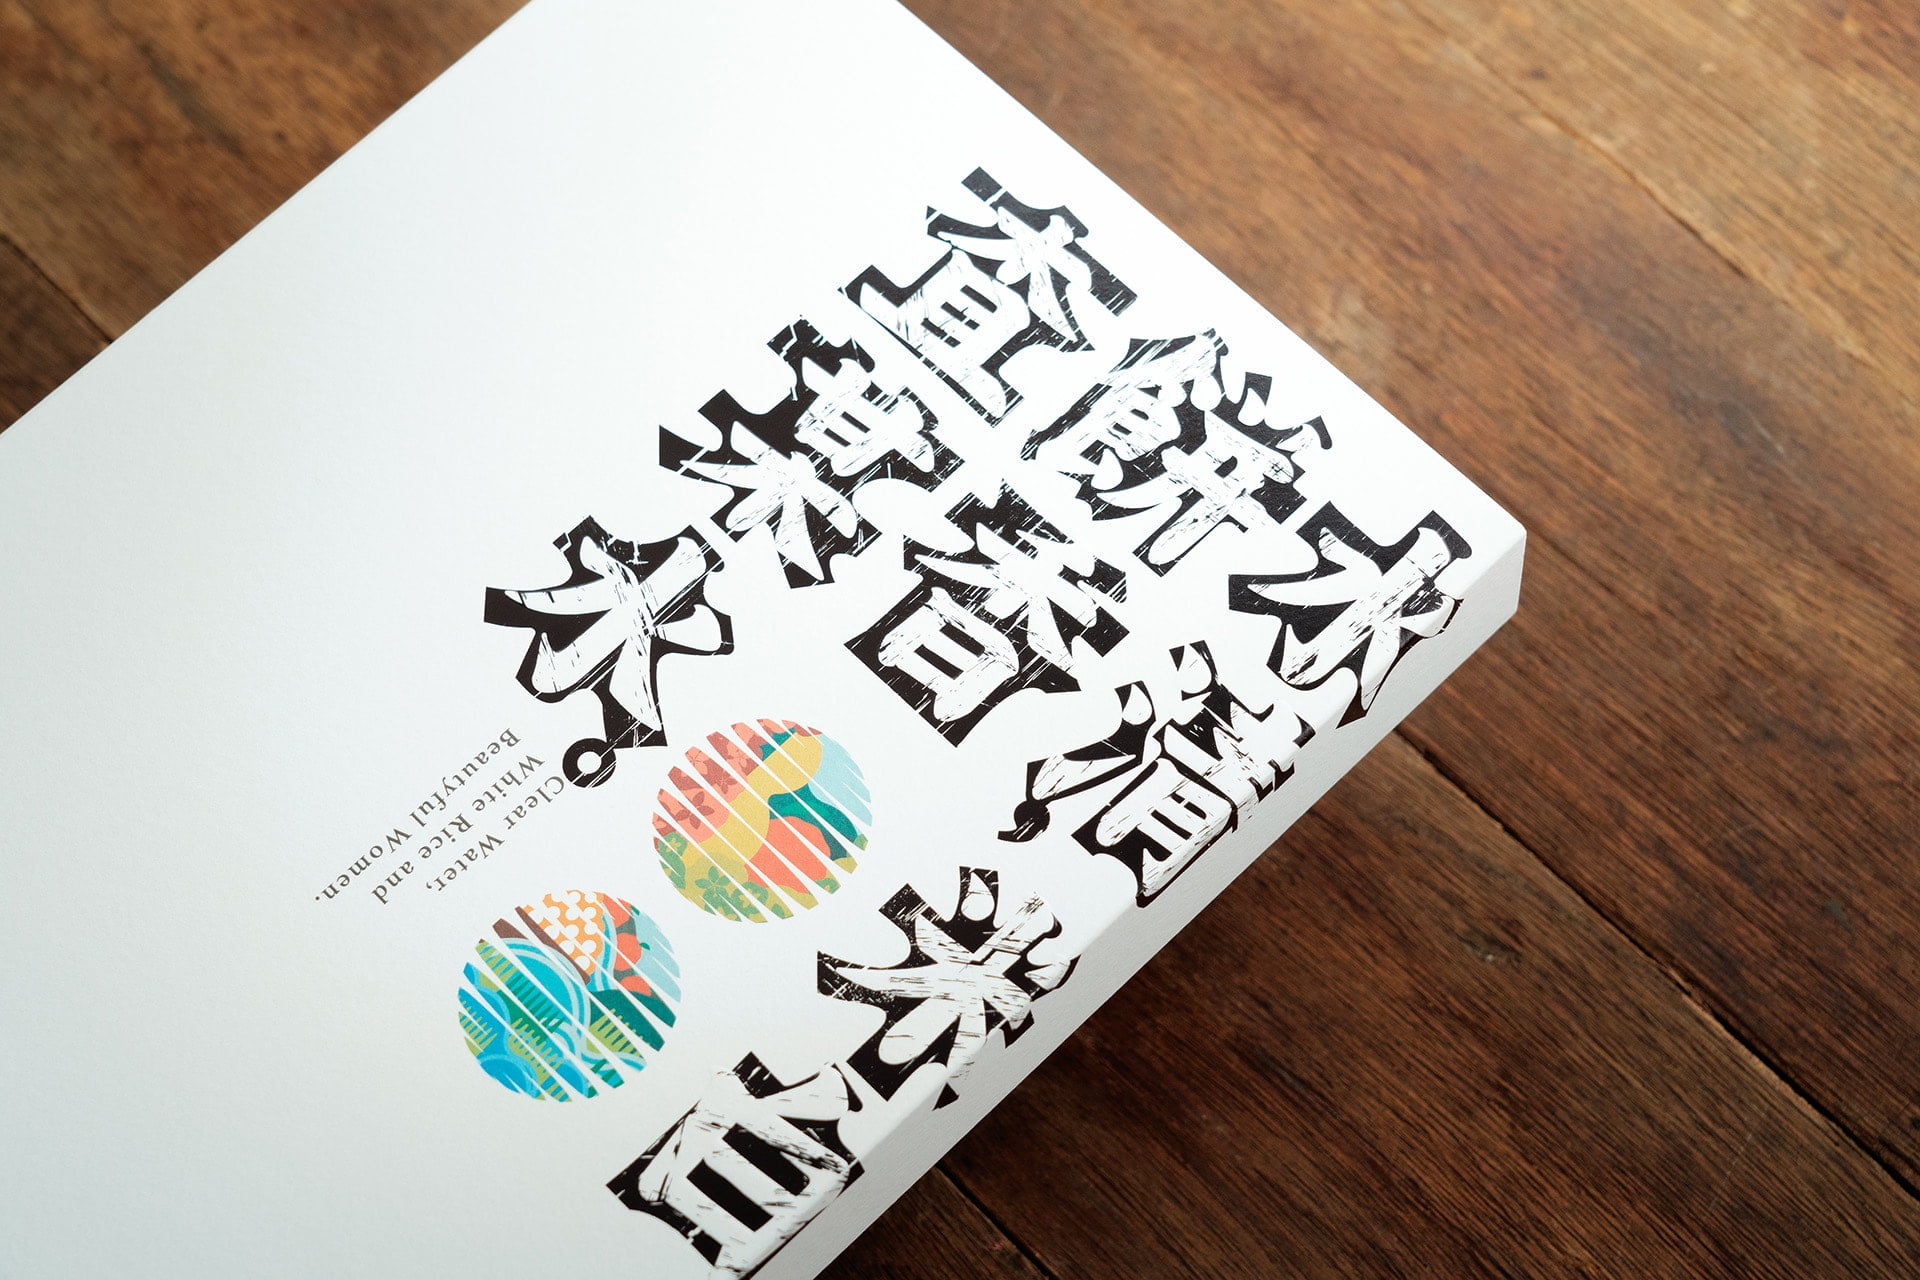 水清，米白
餅香
查某水。
Clear Water,
White Rice and
Beautyful Women.